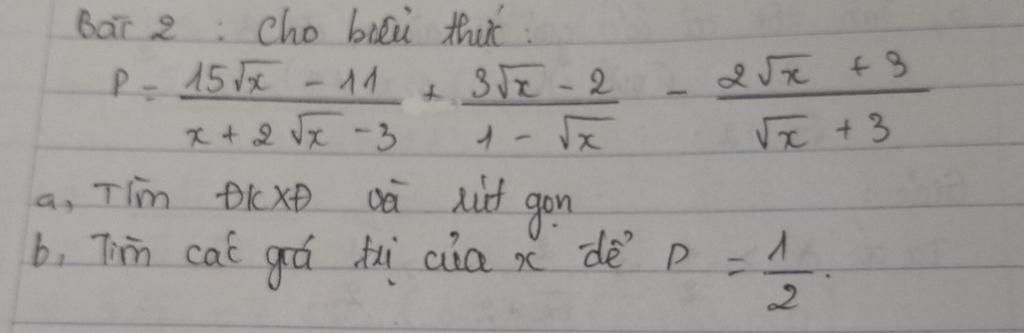 Bài 2 : Cho biểu thức :
P = \frac{15\sqrt{x} - 11}{x + 2\sqrt{x} - 3} + \frac{3\sqrt{x} - 2}{1 - \sqrt{x}} - \frac{2\sqrt{x} + 3}{\sqrt{x} + 3}
a, Tìm ĐKXĐ và rút gọn
b, Tìm các giá trị của x để P = \frac{1}{2}.